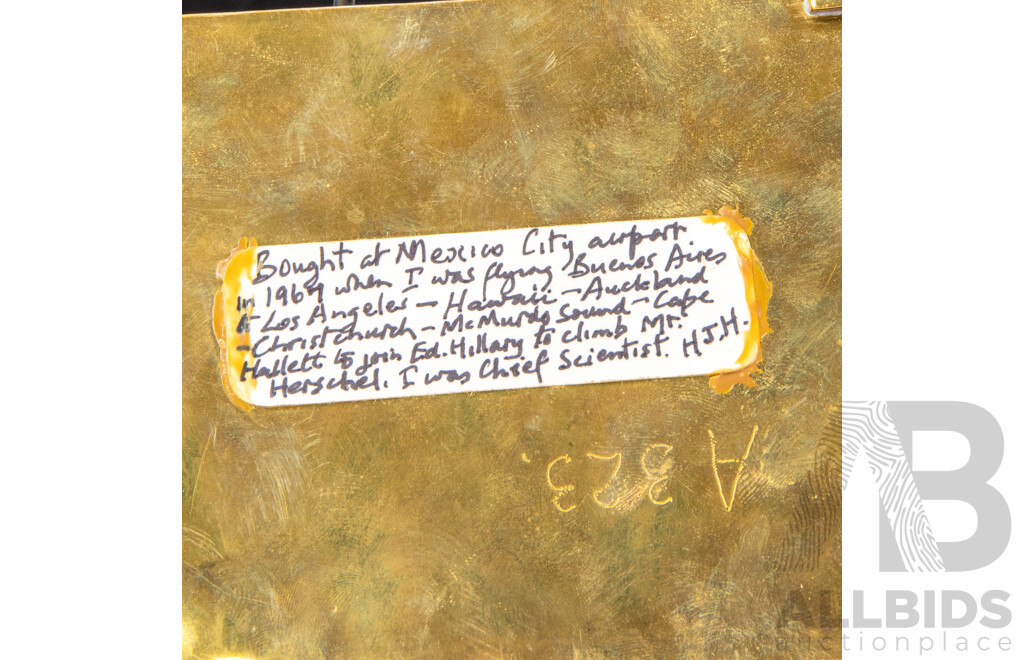 Bought at Mexico City airport
in 1967 when I was flying Buenos Aires
Los Angeles – Hawaii – Auckland
– Christchurch – McMurdo Sound – Cape
Hallett to join Ed. Hillary to climb Mt.
Herschel. I was Chief Scientist. H.J.H.
A 323.
B
ALLBIDS
auctionplace